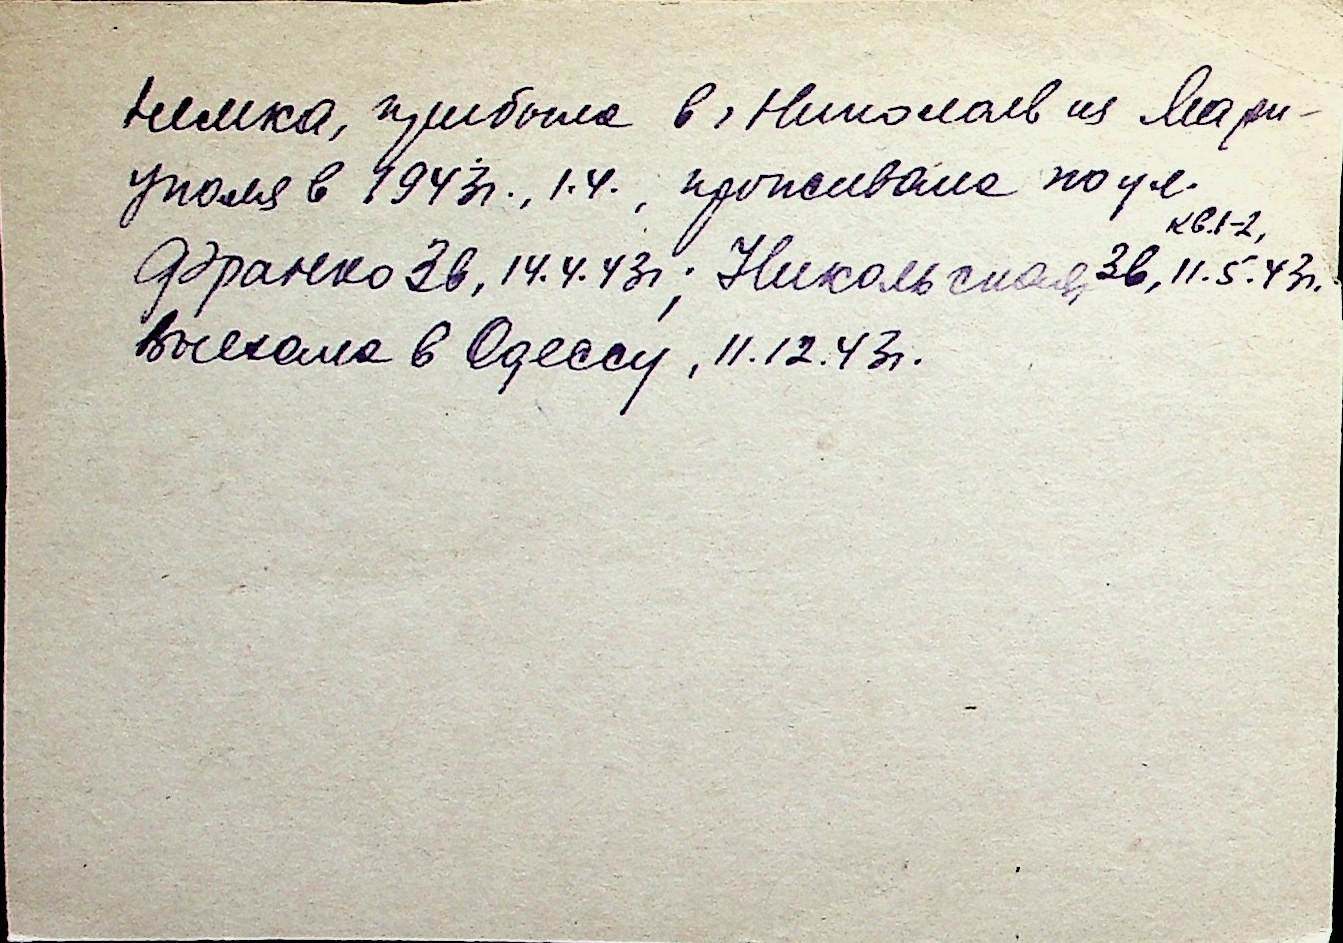 немка, прибыла в г Николаев из Мари-
уполя в 1943г., 1.4., проживала по ул.
кв.1-2,
Франко 3в, 14.4.43г.; Никольская, 3в, 11.5.43г.
Выехала в Одессу, 11.12.43г.